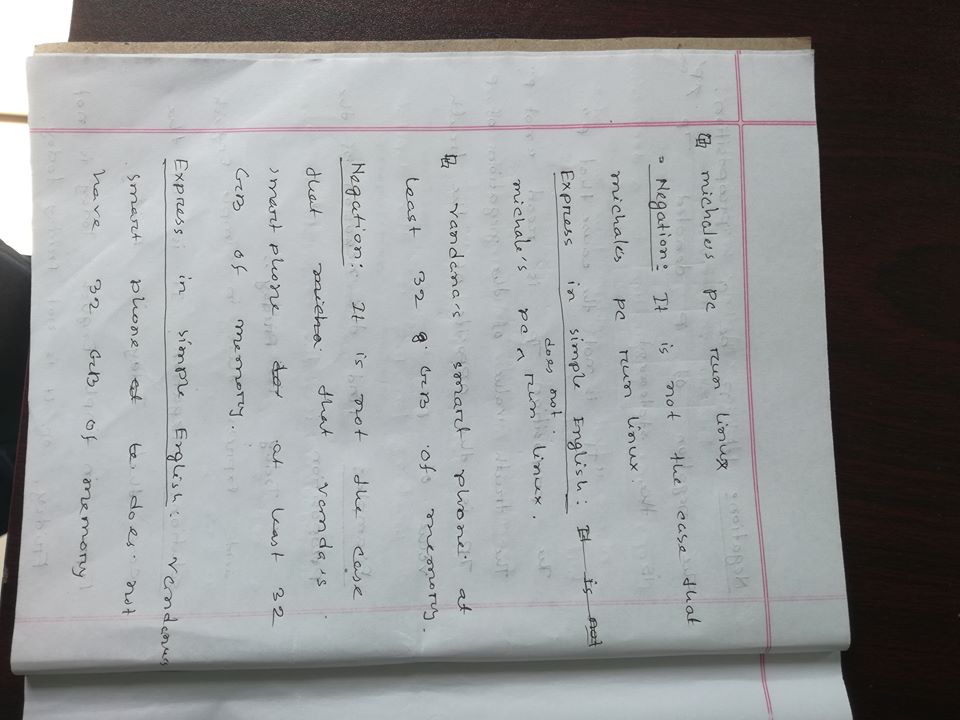 michale's pc run linux
Negation: It is not the case that
michales pc run linux.
Express in simple English: It is not
does not
michale's pc run linux.
vandana's smart phone at
least 32 g GB of memory.
Negation: It is not the case
that micha that vanda's
smart phone do at least 32
GB of memory.
Express in simple English: vandanas
smart phone at does not
have 32 GB of memory